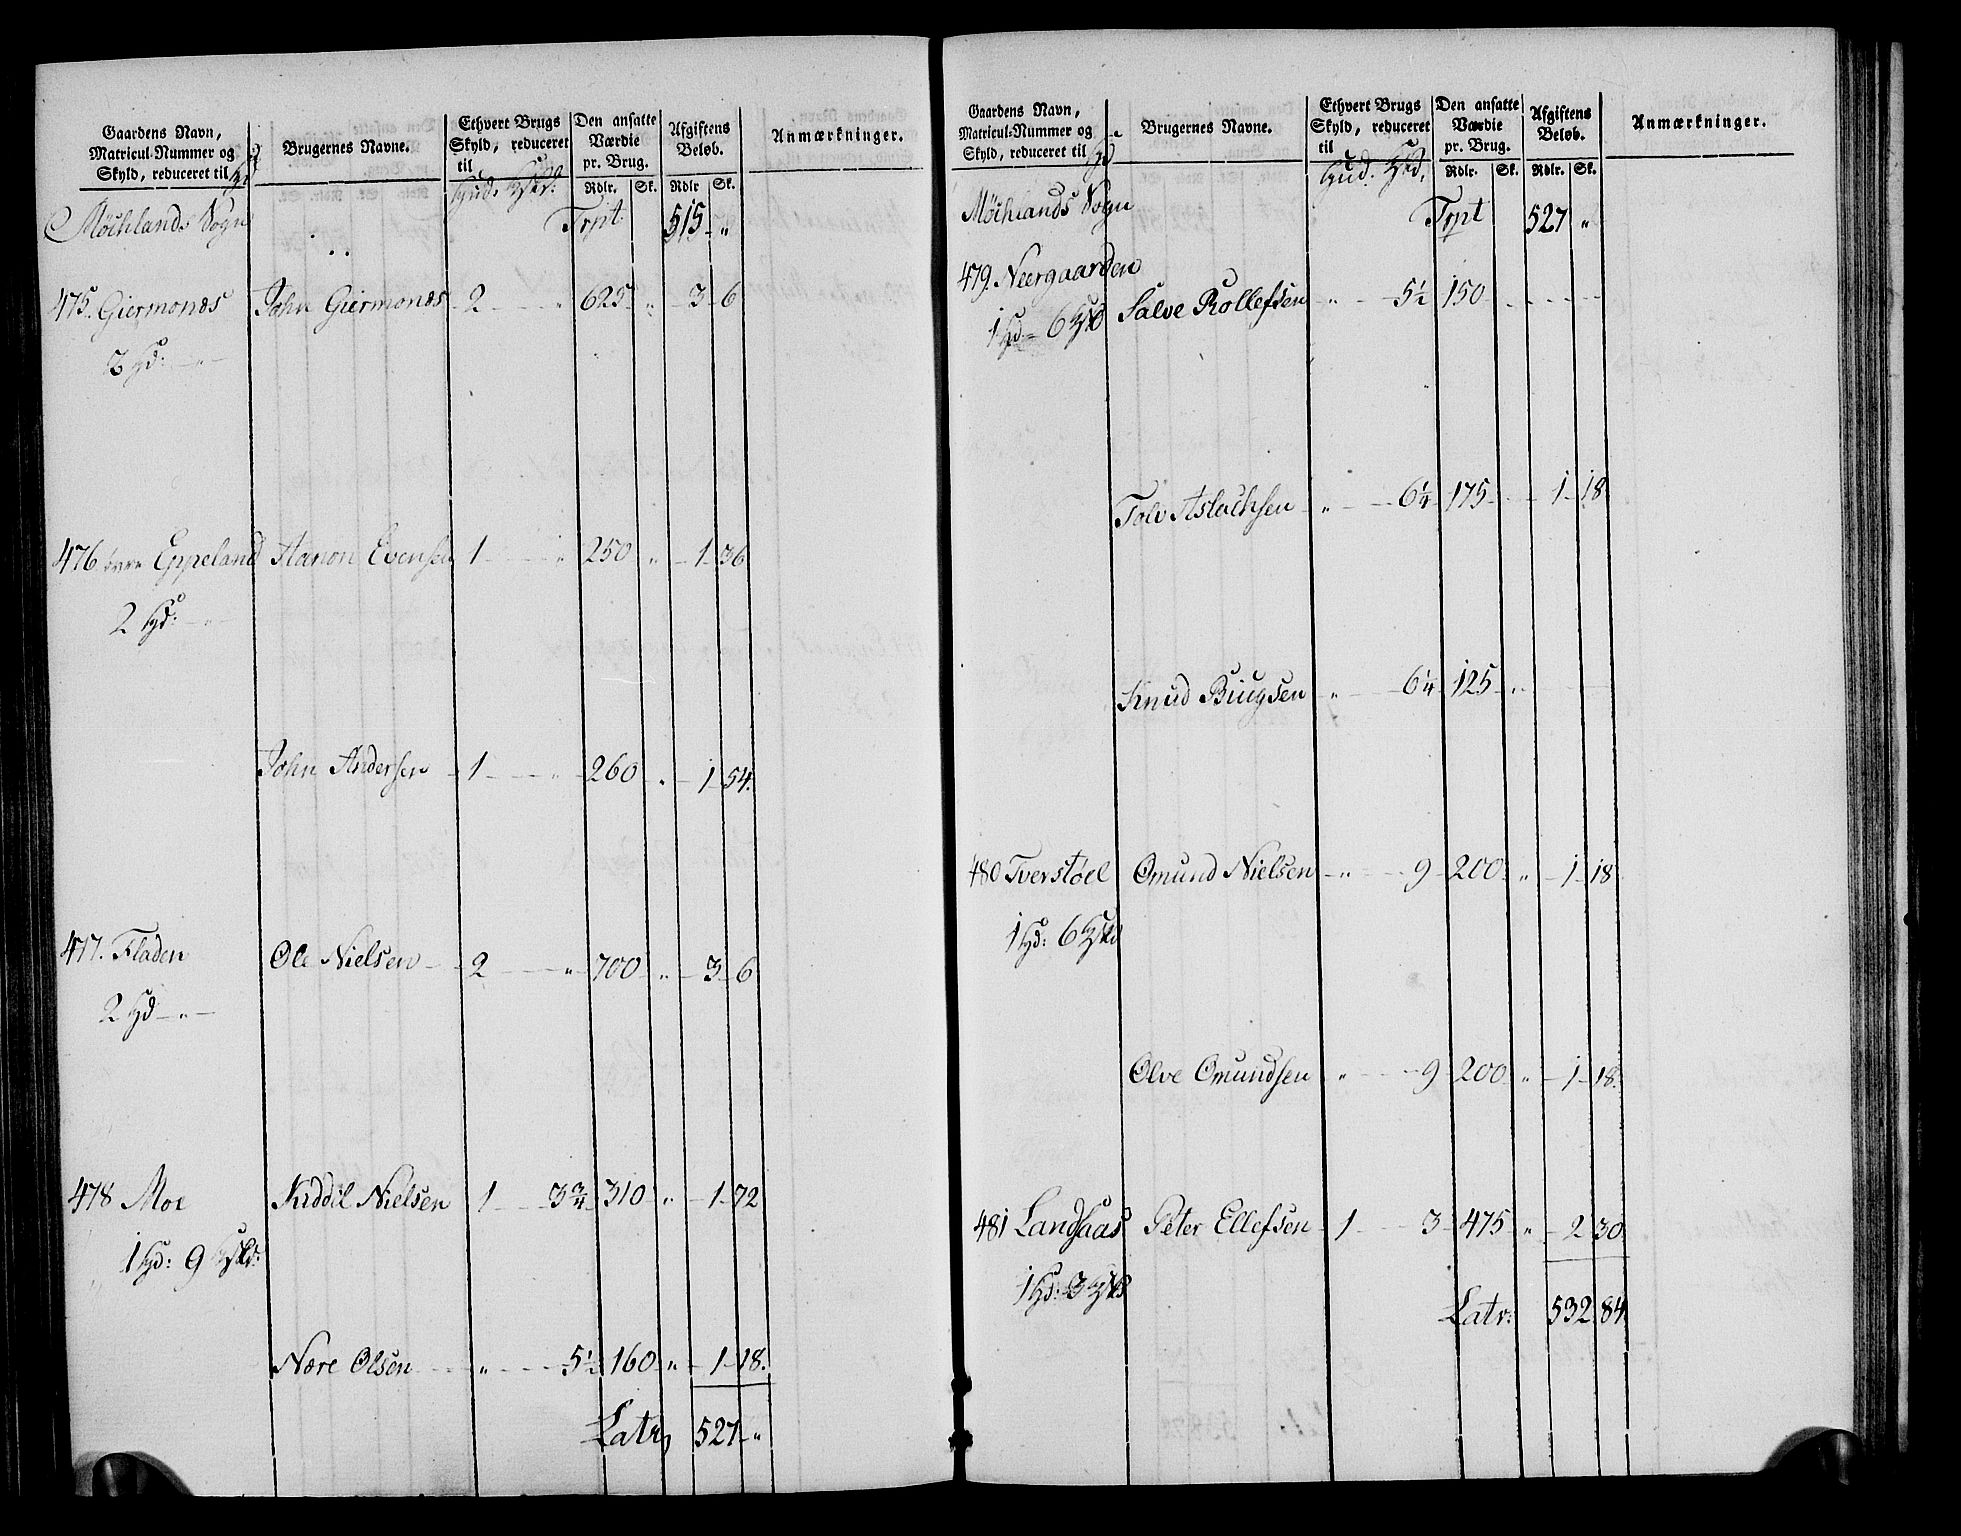 Gaardens Navn, Matricul-Nummer og Skyld, reduceret til Hd | Brugernes Navne. | Ethvert Brugs Skyld, reduceret til Hud. Hskd: | Den ansatte Værdie pr. Brug. Rdlr. Sk. | Afgiftens Beløb. Rdlr Sk. | Anmærkninger.
Møchlands Sogn Trpt. 515 "
475. Giermonæs John Giermonæs 2 " 625 " 3 6
2 Hd: "
476 övre Eppeland Aanon Evensen 1 " 250 " 1 36
2 Hd: "
John Andersen 1 " 260 " 1 54.
477. Fladen Ole Nielsen 2 " 700 " 3 6
2 Hd "
478 Moe Kiddil Nielsen 1 3 3/4 310 " 1 72
1 Hd: 9 Hskd:
Nære Olsen " 5 1/2 160 " 1 18.
Latr 527 "
Gaardens Navn, Matricul-Nummer og Skyld, reduceret til Hd | Brugernes Navne. | Ethvert Brugs Skyld, reduceret til Hud. Hskd. | Den ansatte Værdie pr. Brug. Rdlr. Sk. | Afgiftens Beløb. Rdlr. Sk. | Anmærkninger.
Møchlands Sogn Trpt 527 "
479. Neergaarden
Salve Rollefsen " 5 1/2 150
1 Hd 6 Hskd
Tolv Aslachsen " 6 1/4 175 1 18
Knud Biugsen " 6 1/4 125 "
480 Tverstöel Omund Nielsen " 9 200 " 1 18
1 Hd: 6 Hskd
Olve Omundsen " 9 200 " 1 18.
481 Landsaas Peter Ellefsen 1 3 475 " 2 30
1 Hd: 3 Hskd
Latr: 532 84.